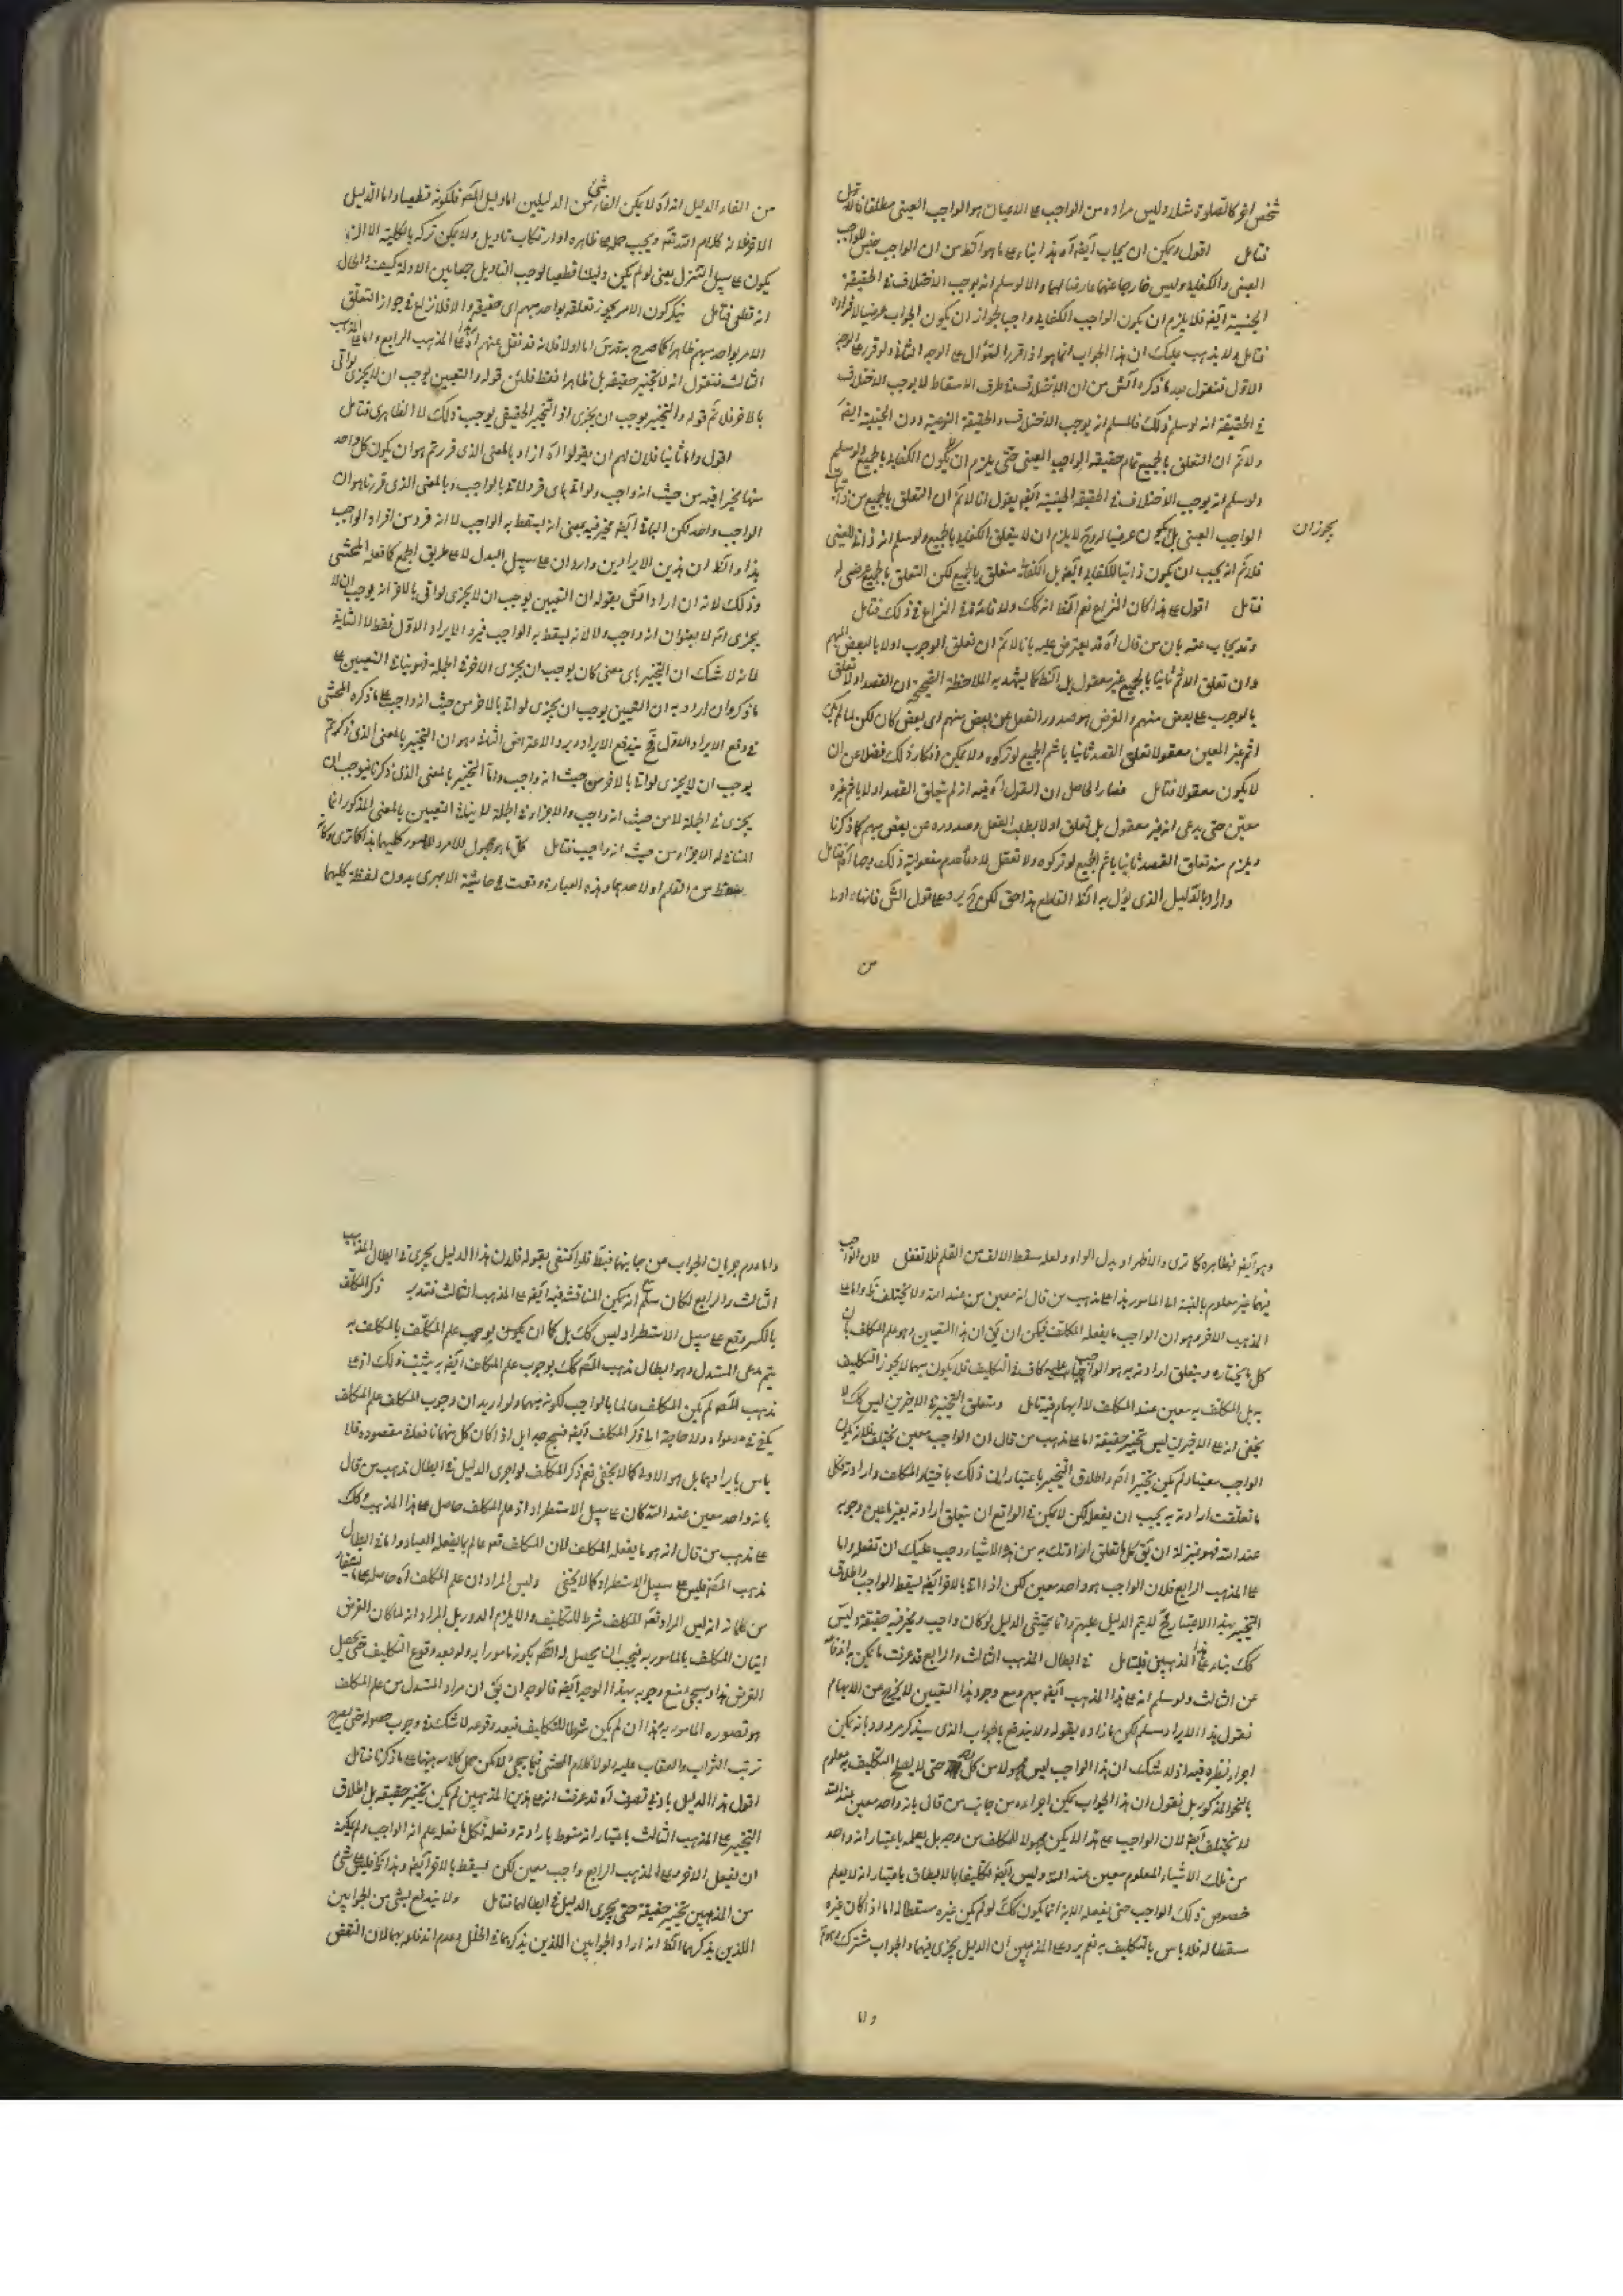 شخص اخر كالصلوة مثلا وليس مراده من الواجب على الاعيان هو الواجب العينى مطلقا
فتأمل اقول ويمكن ان يجاب ايضا آه هذا بناء على ما هو الظ من ان الواجب جنس للواجب
العينى والكفايه وليس خارجا عنهما عارضا لهما والا لو سلم انه يوجب الاختلاف فى الحقيقة
الجنسية ايضا فلا يلزم ان يكون الواجب الكفايه واجبا لجواز ان يكون الواجب عرضيا لافراده
فتأمل ولا يذهب عليك ان هذا الجواب انما هو اذا قرر السؤال على الوجه الثانى ولو قرر على الوجه
الاول فنقول بعد ما ذكره المحشى من ان الاختلاف فى طرف الاسقاط لا يوجب الاختلاف
فى الحقيقة انه لو سلم ذلك فالمسلم انه يوجب الاختلاف فى الحقيقة النوعية دون الجنسية ايضا
ولا نم ان التعلق بالجميع تمام حقيقة الواجب العينى حتى يلزم ان لا يكون الكفايه بالجميع ولو سلم
ولو سلم انه يوجب الاختلاف فى الحقيقة الجنسية ايضا يقول انا لا نم ان التعلق بالجميع من ذاتيات
الواجب العينى بل يكون عرضيا له وح لا يلزم ان لا يتعلق الكفايه بالجميع ولو سلم انه ذاتى للعينى
يجوز ان
فلا نم انه يجب ان يكون ذاتيا للكفايه ايضا بل الكفاية متعلق بالجميع لكن التعلق بالجميع عرضى له
فتأمل اقول على هذا كان النزاع نعم الظ انه كك ولا فائدة فى النزاع فى ذلك فتأمل
وقد يجاب عنه بان من قال آه قد يعترض عليه بانا لا نم ان تعلق الوجوب اولا بالبعض المبهم
وان تعلق الاثم ثانيا بالجميع غير معقول بل الظ كما يشهد به الملاحظة الصحيحة ان القصد اولا تعلق
بالوجوب على بعض منهم والغرض هو صدور الفعل عن بعض منهم اى بعض كان لكن لما لم يكن
اثم غير المعين معقولا تعلق القصد ثانيا باثم الجميع لو تركوه ولا يمكن انكار ذلك فضلا عن ان
لا يكون معقولا فتأمل فصار الحاصل ان القول آه فيه انه لم يتعلق القصد اولا باثم غيره
معين حتى يدعى انه غير معقول بل تعلق اولا بطلب الفعل وصدوره عن بعض مبهم كما ذكرنا
ويلزم منه تعلق القصد ثانيا باثم الجميع لو تركوه ولا تعقل لادعاء عدم معقولية ذلك
واراد بالدليل الذى يؤل به الظ القاطع هذا حق لكن ح يرد على قول الش فان الغاء اولى
من
من الغاء الدليل انه آه لا يمكن الغاء شئ من الدليلين اما دليل الخصم فلكونه قطعيا واما الدليل
الاخر فلانه كلام الله تعالى ويجب حمله على ظاهره او ارتكاب تاويل ولا يمكن تركه بالكلية الا ان
يكون على سبيل التنزل يعنى لو لم يكن دليلنا قطعيا لوجب التاويل جمعا بين الادلة كيف والحال
انه قطعى فتأمل فيكون الامر يجوز تعلقه بواحد مبهم اى حقيقة والا فلا نزاع فى جواز التعلق
الامر بواحد مبهم ظاهرا كما صرح به
الثالث فنقول انه لا تخيير حقيقة بل ظاهرا فقط
بالاخر فلا نم قوله والتخيير يوجب ان يجزى اذ التخيير الحقيقى يوجب ذلك لا الظاهرى فتأمل
اقول واما ثانيا فلان لهم ان يقولوا آه اراد بالمعنى الذى قررتم هو ان يكون كل واحد
منهما مخيرا فيه من حيث انه واجب
الواجب واحد لكن
هذا والظ ان هذين الايرادين واردان على سبيل البدل لا على طريق الجمع كما فعله المحشى
وذلك لانه ان اراد المحشى بقوله ان التعيين يوجب ان لا يجزى لو اتى بالاخر انه يوجب ان لا
يجزى انه لا بعنوان انه واجب ولا لانه يسقط به الواجب فيرد الايراد الاول فقط لا الثانية
لانه لا شك ان التخيير باى معنى كان يوجب ان يجزى الاخر فى الجملة فهو ينافى التعيين على
ما ذكر وان اراد به ان التعيين يوجب ان يجزى لو اتى بالاخر من حيث انه واجب على ما ذكره المحشى
فى دفع الايراد الاول فح يندفع الايراد ويرد الاعتراض الثانى وهو ان التخيير بالمعنى الذى ذكرتم
يوجب ان لا يجزى لو اتى بالاخر من حيث انه واجب واما التخيير بالمعنى الذى ذكرنا فيوجب ان
يجزى فى الجملة لا من حيث انه واجب والاجزاء فى الجملة لا ينافى التعيين بالمعنى المذكور انما
المنافى له الاجزاء من حيث انه واجب فتأمل كل ما هو مجهول للامر والمامور كليهما هذا كما ترى وكانه
سقط من القلم او لا حد بها وهذه العبارة وقعت فى حاشية الابهرى بدون لفظة كليهما
وهو ايضا بظاهره كما ترى والاظهر او بدل الواو ولعله سقط الالف من القلم فلا تغفل لان الواجب
فيهما غير معلوم بالنسبة الى المامور هذا على مذهب من قال انه معين من عند الله ولا يختلف
المذهب الاخر وهو ان الواجب ما يفعله المكلف فيمكن ان يق ان هذا التعيين وهو علم المكلف بان
كل ما يختاره ويتعلق ارادته به هو الواجب عليه كاف فى التكليف فلا يكون مبهما لا يجوز التكليف
به بل المكلف به معين عند المكلف لا ابهام فيه فتأمل ومتعلق التخيير فى الاخرين ليس كك لا
يخفى انه على الاخيرين ليس تخيير حقيقة اما على مذهب من قال ان الواجب معين يختلف فلانه يكون
الواجب معينا ولم يكن تخييرا اصلا واطلاق التخيير باعتبار ان ذلك باختيار المكلف وارادته فكل
ما تعلقت ارادته به يجب ان يفعل لكن لا يمكن فى الواقع ان يتعلق ارادته بغير ما عين وجوبه
عند الله فهو بمنزلة ان يق كلما تعلق ارادتك به من هذه الاشياء وجب عليك ان تفعله واما
على المذهب الرابع فلان الواجب هو واحد معين لكن اذا اتى بالاخر ايضا يسقط الواجب واطلاق
التخيير بهذا الاعتبار فح لا يتم الدليل عليهم وانما يتمشى الدليل لو كان واجب ويخير فيه حقيقة وليس
كك بناء على هذا المذهبين فليتأمل فى ابطال المذهب الثالث والرابع قد عرفت ما يمكن
عن الثالث ولو سلم انه على هذا المذهب ايضا مبهم ومع وجود هذا التعيين لا يخرج من الابهام
نقول هذا الايراد مسلم لكن ما زاده بقوله ولا يندفع بالجواب الذى سيذكر مردود بانه يمكن
اجراء نظيره فيه اذ لا شك ان هذا الواجب ليس مجهولا من كل وجه حتى لا يصح التكليف به معلوم
بالنحو المذكور بل نقول ان هذا الجواب يمكن اجراءه من جانب من قال بانه واحد معين عند الله
لا يختلف ايضا لان الواجب على هذا لا يكون مجهولا للمكلف من وجه بل يعلمه باعتبار انه واحد
من تلك الاشياء المعلوم معين عند الله وليس ايضا تكليفا بالا يطاق باعتبار انه لا يعلم
خصوص ذلك الواجب حتى يفعله لانه انما يكون كك لو لم يكن غيره مسقطا له اما اذا كان غيره
مسقطا له فلا باس بالتكليف به نعم يرد على المذهبين ان الدليل يجزى فيهما والجواب مشترك
واما
واما عدم جريان الجواب من جانبهما فقط فلو اكتفى بقوله فلان هذا الدليل يجرى فى ابطال المذهب
الثالث والرابع لكان سلم انه يمكن المناقشة فيه ايضا على المذهب الثالث فتدبر ذكر المكلف
بالكسر وقع على سبيل الاستطراد ليس كك بل كما ان يكون يوجب علم المكلف بالمكلف به
يتم مدعى المستدل وهو ابطال مذهب الخصم كك بوجوب علم المكلف ايضا به يثبت ذلك اذ على
مذهب الخصم لم يكن المكلف عالما بالواجب لكونه مبهما ولو اريد ان وجوب المكلف علم المكلف
يكفى فى مدعواه ولا حاجة الى ذكر المكلف ايضا فبيح جدا بل اذا كان كل منهما نافعا فى مقصوده فلا
باس بايرادهما بل هو الاولى كما لا يخفى نعم ذكر المكلف لو اجرى الدليل فى ابطال مذهب من قال
بانه واحد معين عند الله كان على سبيل الاستطراد اذ علم المكلف حاصل على هذا المذهب وكك
على مذهب من قال انه هو ما يفعله المكلف لان المكلف تعالى عالم بما يفعله العباد واما فى ابطال
مذهب الخصم فليس على سبيل الاستطراد كما لا يخفى وليس المراد ان علم المكلف آه حاصل
من كلامه انه ليس المراد فهم المكلف شرط للتكليف والا يلزم الدور بل المراد انه لما كان الغرض
اتيان المكلف بالمامور به فيجب ان يحصل له العلم بكونه مامورا به ولو بعد وقوع التكليف حتى يحصل
الغرض هذا وسيجئ منع وجوبه بهذا الوجه ايضا فالوجه ان يق ان مراد المستدل من علم المكلف
هو تصوره المامور به بهذا ان لم يكن شرطا للتكليف فبعد وقوعه لا شك فى وجوب حصوله حتى يصح
ترتب الثواب والعقاب عليه ولولا كلام المحشى فيما يجئ لامكن حمل كلامه ههنا على ما ذكرنا فتأمل
اقول هذا الدليل بادنى تصرف آه قد عرفت انه على هذين المذهبين لم يكن تخيير حقيقة بل اطلاق
التخيير على المذهب الثالث باعتبار انه منوط بارادته وفعله فكل ما فعله علم انه الواجب ولم يمكنه
ان يفعل الاخر وعلى المذهب الرابع واجب معين لكن يسقط بالاخر ايضا وهذا كاف فليس على شئ
من المذهبين تخيير حقيقة حتى يجرى الدليل فى ابطالهما فتأمل ولا يندفع بشئ من الجوابين
اللذين يذكرهما الظ انه اراد الجوابين اللذين يذكرهما فى الحل وعدم اندفاعه بهما لان النقض